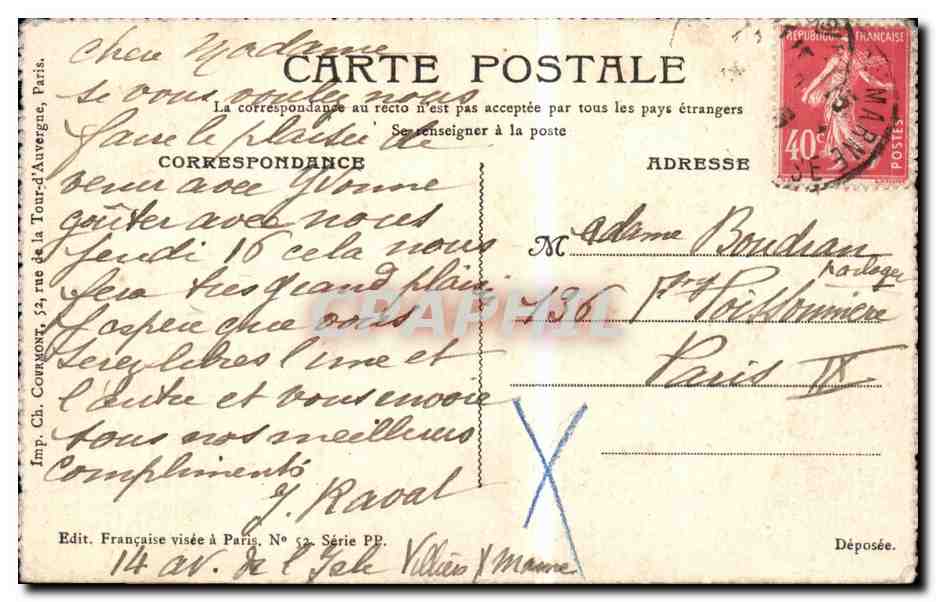 CARTE POSTALE
La correspondance au recto n'est pas acceptée par tous les pays étrangers
Se renseigner à la poste
CORRESPONDANCE
Chere Madame
si vous voulez nous
faire le plaisir de
venir avec Yvonne
goûter avec nous
Jeudi 16 cela nous
fera tres grand plaisir
J'aspere que vous
serez libres l'une et
l'autre et vous envoie
tous nos meilleurs
compliments
J. Raval
14 av. de l'Isle Villiers s/ Marne
ADRESSE
Madame Boudran
horloger
136 Fbg Poissonnière
Paris IX
REPUBLIQUE FRANÇAISE
40c
POSTES
MARNE
CPAPHIL
Imp. Ch. COURMONT, 52, rue de la Tour-d'Auvergne, Paris.
Edit. Française visée à Paris. No 52. Série PP.
Déposée.